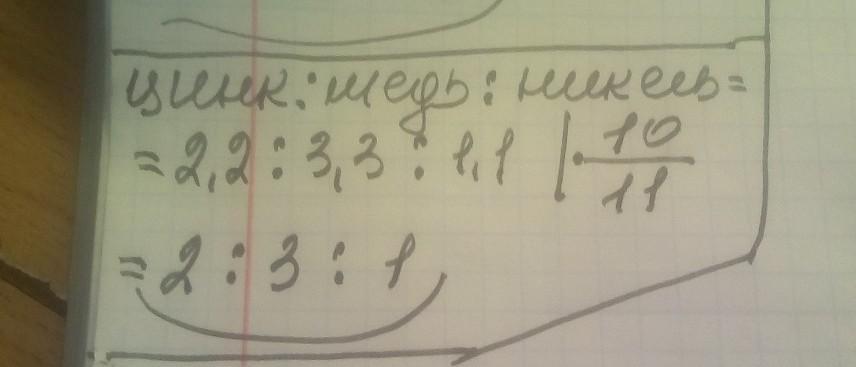 цинк:медь:никель=
=2,2:3,3:1,1 |·10/11
=2:3:1